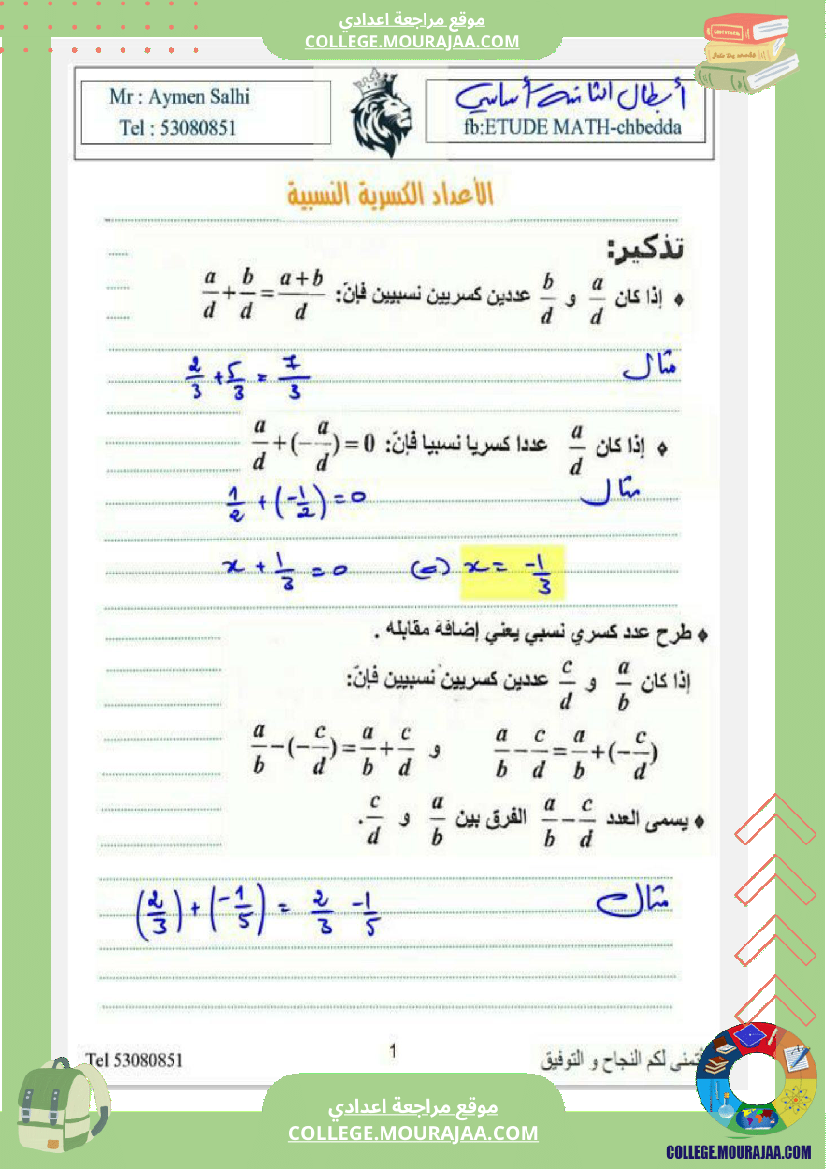 موقع مراجعة اعدادي
COLLEGE.MOURAJAA.COM
Mr : Aymen Salhi
Tel : 53080851
أبطال الثامنة أساسي
fb:ETUDE MATH-chbedda
الأعداد الكسرية النسبية
تذكير:
إذا كان a/d و b/d عددين كسريين نسبيين فإنّ: a/d + b/d = (a+b)/d
مثال
2/3 + 5/3 = 7/3
إذا كان a/d عددا كسريا نسبيا فإنّ: a/d + (-a/d) = 0
مثال
1/2 + (-1/2) = 0
x + 1/3 = 0 (=) x = -1/3
طرح عدد كسري نسبي يعني إضافة مقابله .
إذا كان a/b و c/d عددين كسريين نسبيين فإنّ:
a/b - c/d = a/b + (-c/d) و a/b - (-c/d) = a/b + c/d
يسمى العدد a/b - c/d الفرق بين a/b و c/d.
مثال
(2/3) + (-1/5) = 2/3 - 1/5
Tel 53080851
1
تمنى لكم النجاح و التوفيق
موقع مراجعة اعدادي
COLLEGE.MOURAJAA.COM
COLLEGE.MOURAJAA.COM